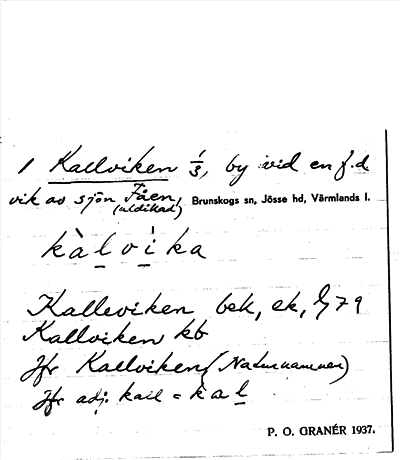 1 Kallviken 1/3, by vid en f.d.
vik av sjön Fåen, Brunskogs sn, Jösse hd, Värmlands l.
(utdikad)
kàlvika
Kalleviken bek, ek, 79
Kallviken kb
Jfr Kallviken (Naturnamnen)
Jfr adj. kall = kal
P. O. GRANÉR 1937.